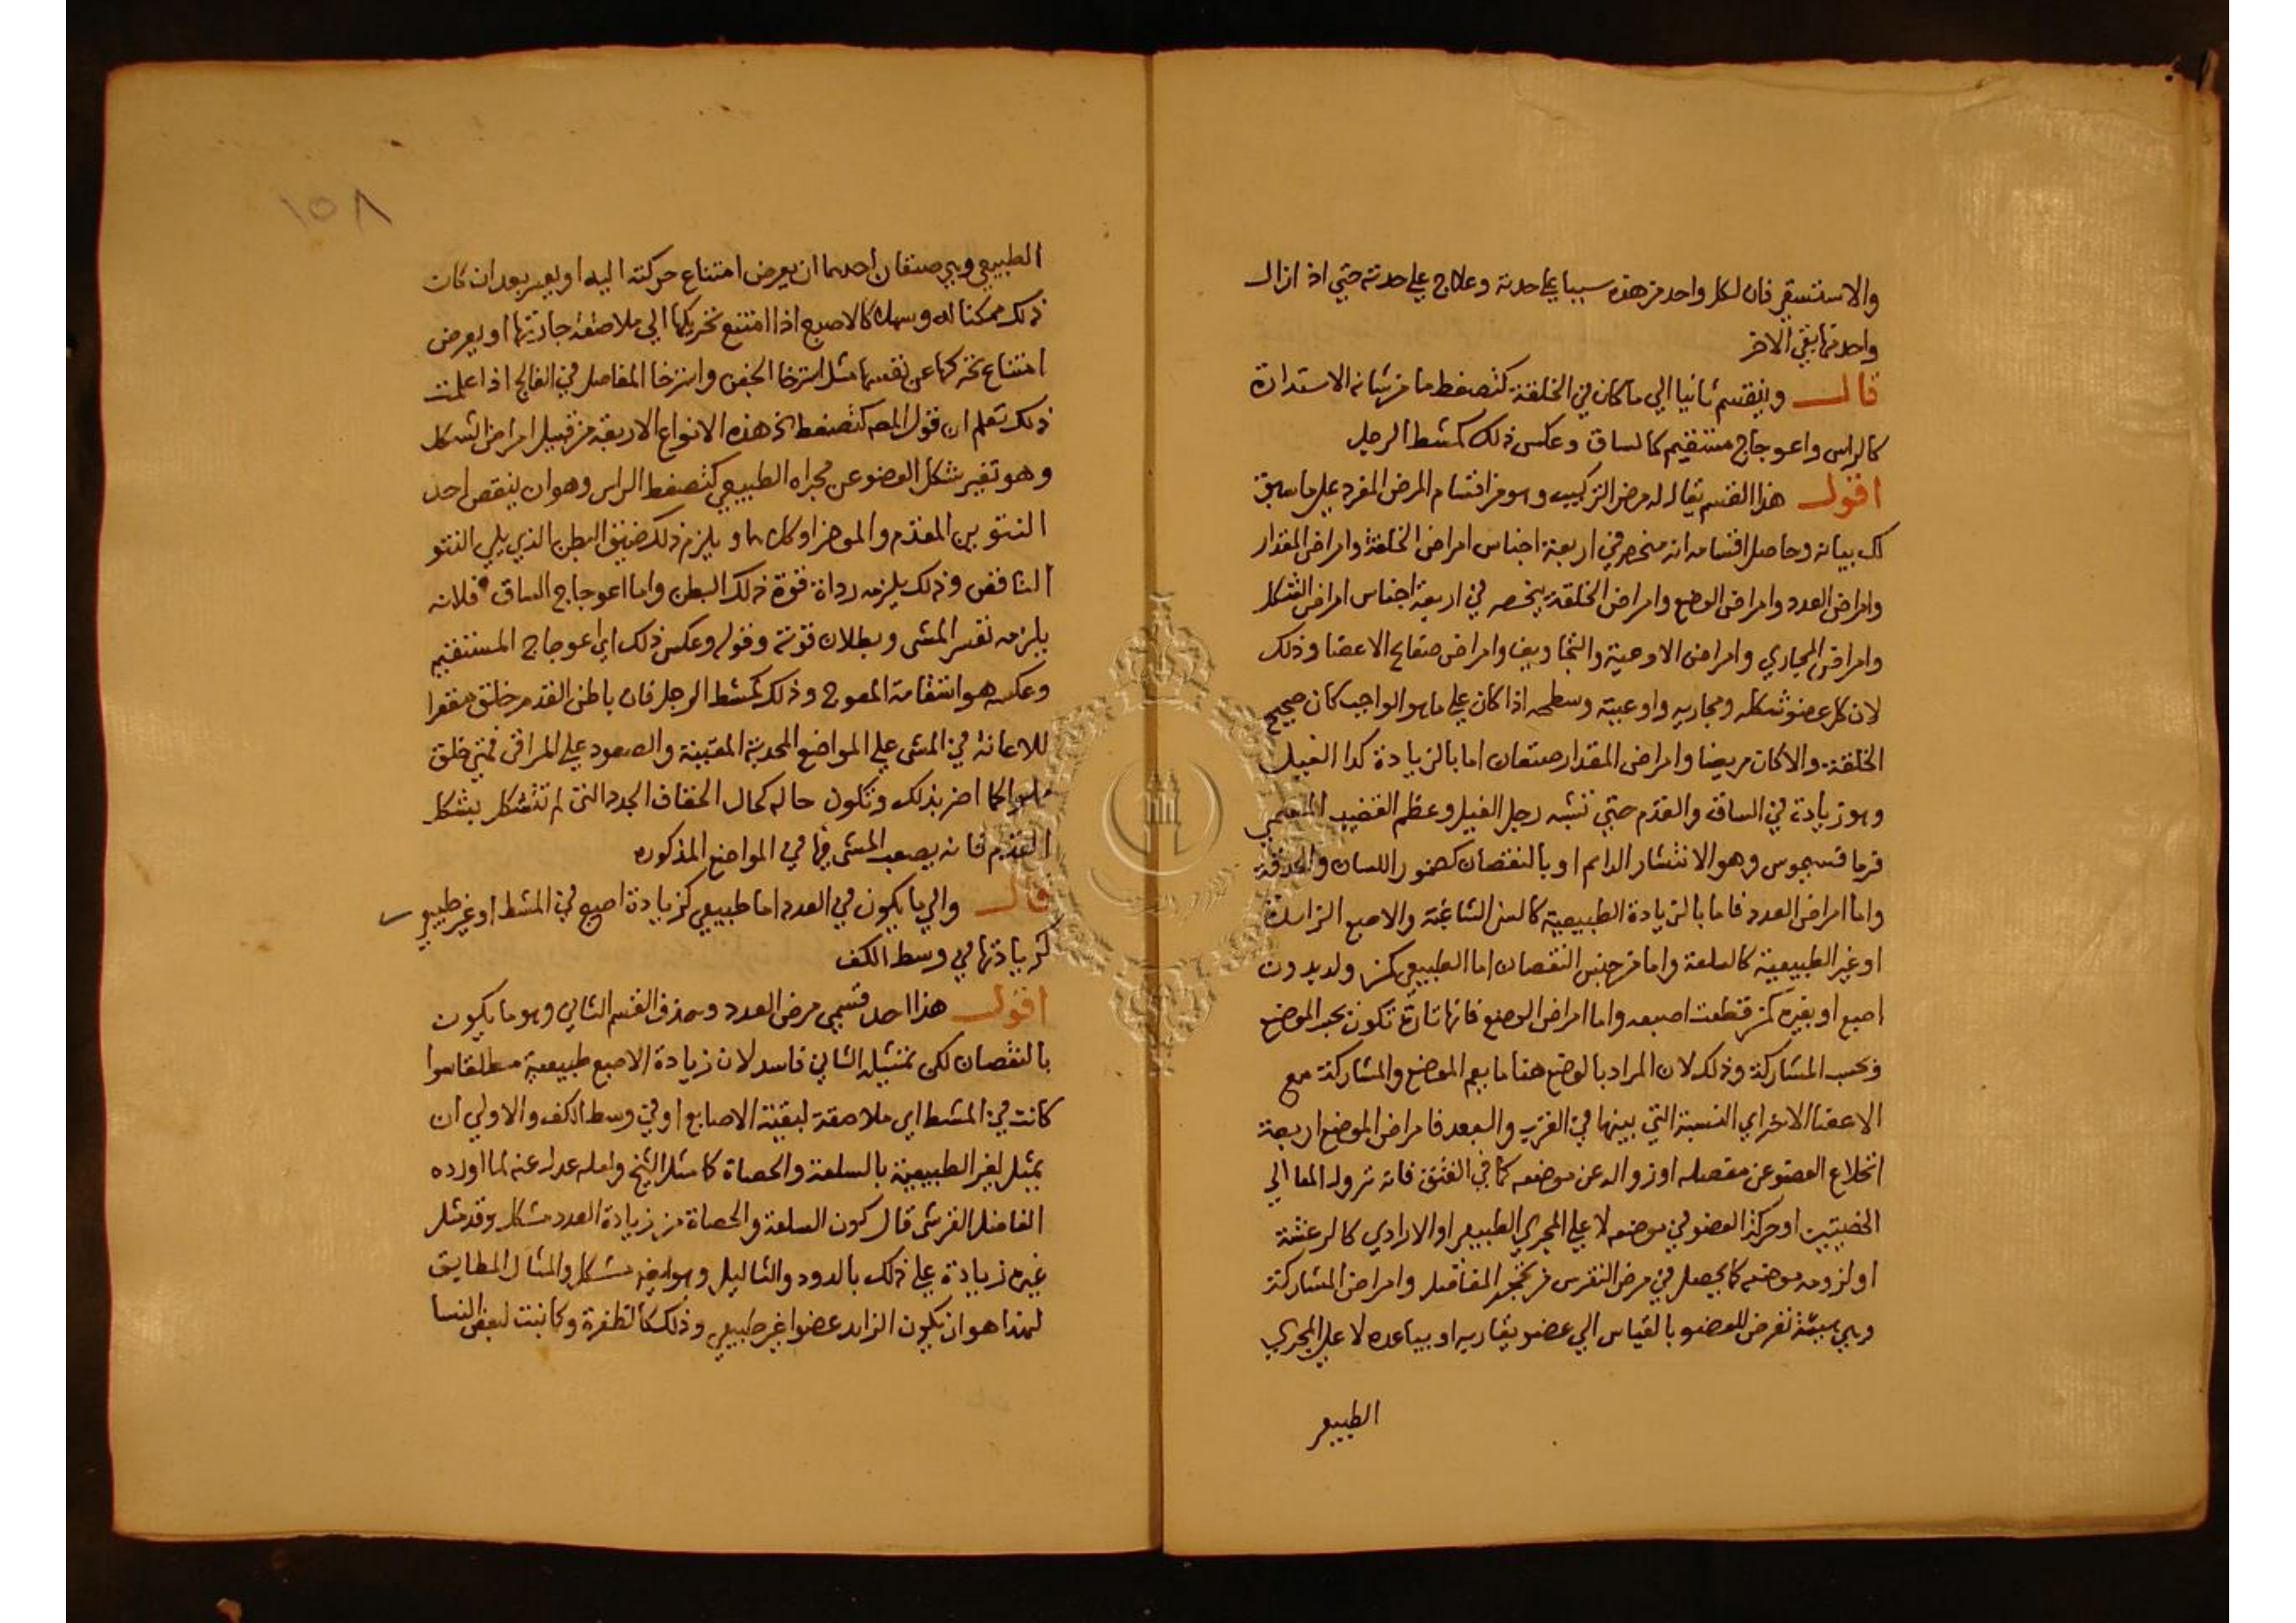 والاستسقي فان لكل واحد من هذه سببا علي حدته وعلاج علي حدته حتي اذا زال
واحد منها بقي الاخر
قال وينقسم ثانيا الي ما كان في الخلقة كتصفط ما من شانه الاستدارة
كالراس واعوجاج مستقيم كالساق وعكس ذلك كمشط الرجل
اقول هذا القسم يقال له مرض التركيب وهو من اقسام المرض المفرد علي ما سبق
لك بيانه وحاصل اقسامه انه منحصر في اربعة اجناس امراض الخلقة وامراض المقدار
وامراض العدد وامراض الوضع وامراض الخلقة ينحصر في اربعة اجناس امراض الشكل
وامراض المجاري وامراض الاوعية والتجاويف وامراض صفايح الاعضا وذلك
لان كل عضو شكله ومجاريه واوعيته وسطحه اذا كان علي ما هو الواجب كان صحيح
الخلقة والا كان مريضا وامراض المقدار صنفان اما بالزيادة كدا الفيل
وهو زيادة في الساق والقدم حتي تشبه رجل الفيل وعظم القضيب المسمي
فرماقسيموس وهو الانتشار الدايم او بالنقصان كضمور اللسان والحدقة
واما امراض العدد فاما بالزيادة الطبيعية كالسن الشاغية والاصبع الزايدة
او غير الطبيعية كالسلعة واما من جنس النقصان اما الطبيعي كمن ولد بدون
اصبع او بغيره كمن قطعت اصبعه واما امراض الوضع فانها تارة تكون بحسب الموضع
وبحسب المشاركة وذلك لان المراد بالوضع هنا ما يعم الموضع والمشاركة مع
الاعضا الاخر اي النسبة التي بينها في القرب والبعد فامراض الموضع اربعة
انخلاع العضو عن مفصله او زواله عن موضعه كما في الفتق فانه نزول المعا الي
الخصيتين او حركة العضو في موضعه لا علي المجري الطبيعي او الارادي كالرعشة
او لزومه موضعه كما يحصل في مرض النقرس من تحجر المفاصل وامراض المشاركة
وهي هيئة تعرض للعضو بالقياس الي عضو يقاربه او يباعده لا علي المجري
الطبيعي
١٥٨
الطبيعي وهي صنفان احدهما ان يعرض امتناع حركته اليه او بعسر بعد ان كان
ذلك ممكنا له وسهلا كالاصبع اذا امتنع تحريكها الي ملاصقة جارتها او يعرض
امتناع تحركها عن نفسها مثل استرخا الجفن واسترخا المفاصل في الفالج اذا علمت
ذلك تعلم ان قول المصـ كتصفط الخ هذه الانواع الاربعة من قبيل امراض الشكل
وهو تغير شكل العضو عن مجراه الطبيعي كتصفط الراس وهو ان ينقص احد
النتوين المقدم والموخر او كلاهما ويلزم ذلك ضيق البطن الذي يلي النتو
الناقص وذلك يلزمه رداة قوة ذلك البطن واما اعوجاج الساق فلانه
يلزمه تعسر المشي وبطلان قوته وقوله وعكس ذلك اي اعوجاج المستقيم
وعكسه هو استقامة المعوج وذلك كمشط الرجل فان باطن القدم خلق مقعرا
للاعانة في المشي علي المواضع المحدبة المقببة والصعود علي المراقي فمتي خلق
اضر بذلك وتكون حاله كحال الخفاف الجدد التي لم تتشكل بشكل
القدم فانه يصعب المشي فيها في المواضع المذكوره
قال والي ما يكون في العدد اما طبيعي كزيادة اصبع في المشط او غير طبيعي
كزيادتها في وسط الكف
اقول هذا احد قسمي مرض العدد وحذف القسم الثاني وهو ما يكون
بالنقصان لكن تمثيله الثاني فاسد لان زيادة الاصبع طبيعية مطلقا سوا
كانت في المشط اي ملاصقة لبقية الاصابع او في وسط الكف والاولي ان
يمثل لغير الطبيعية بالسلعة والحصاة كما مثل الشيخ ولعله عدل عنه لما اورده
الفاضل القرشي قال كون السلعة والحصاة من زيادة العدد مشكل وقد مثل
غيره زيادة علي ذلك بالدود والثاليل وهو ايضا مشكل والمثال المطابق
لهذا هو ان يكون الزايد عضوا غير طبيعي وذلك كالظفرة وكما نبت لبعض النسا